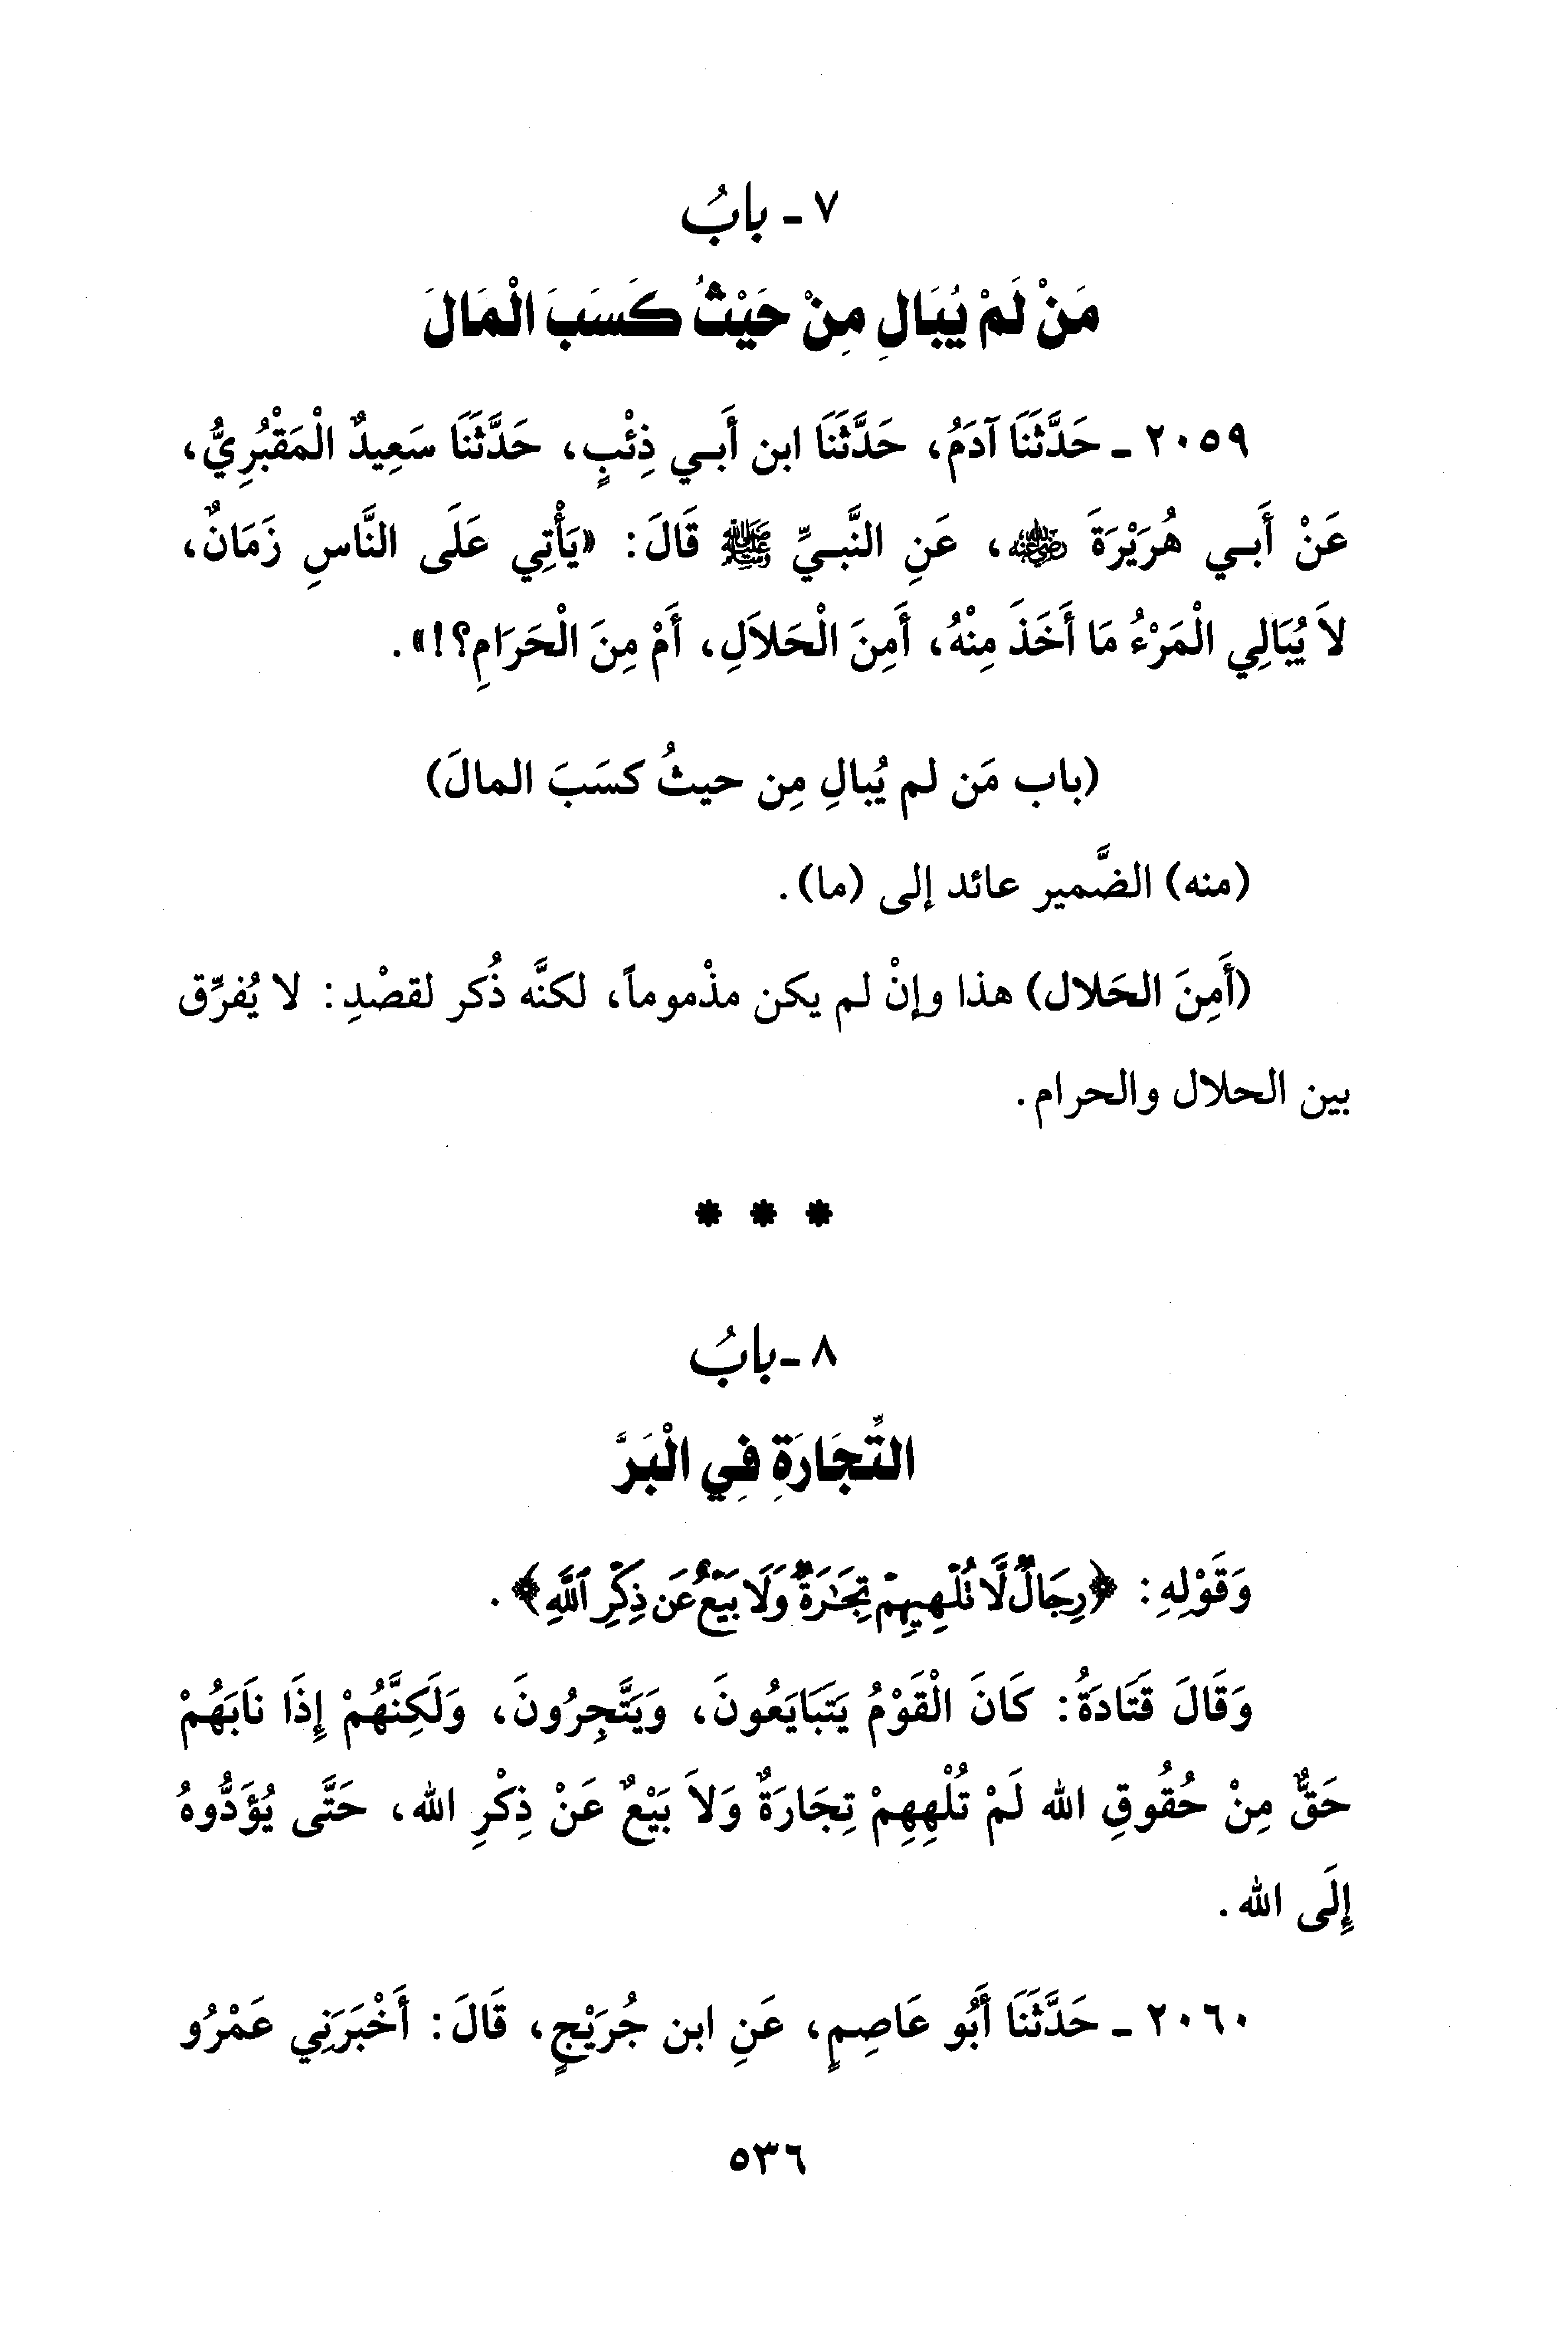 ٧ - بابُ
مَنْ لَمْ يُبَالِ مِنْ حَيْثُ كَسَبَ الْمَالَ
٢٠٥٩ - حَدَّثَنَا آدَمُ، حَدَّثَنَا ابن أَبي ذِئْبٍ، حَدَّثَنَا سَعِيدٌ الْمَقْبُرِيُّ،
عَنْ أَبي هُرَيْرَةَ ﵁، عَنِ النَّبيِّ ﷺ قَالَ: «يَأْتِي عَلَى النَّاسِ زَمَانٌ،
لاَ يُبَالِي الْمَرْءُ مَا أَخَذَ مِنْهُ، أَمِنَ الْحَلاَلِ، أَمْ مِنَ الْحَرَامِ؟!».
(باب مَن لم يُبالِ مِن حيثُ كسَبَ المالَ)
(منه) الضَّمير عائد إلى (ما).
(أَمِنَ الحَلال) هذا وإنْ لم يكن مذْموماً، لكنَّه ذُكر لقصْدِ: لا يُفرِّق
بين الحلال والحرام.
* * *
٨ - بابُ
التِّجَارَةِ فِي الْبَرَّ
وَقَوْلِهِ: ﴿رِجَالٌ لَّا تُلْهِيهِمْ تِجَٰرَةٌ وَلَا بَيْعٌ عَن ذِكْرِ ٱللَّهِ﴾.
وَقَالَ قَتَادَةُ: كَانَ الْقَوْمُ يَتَبَايَعُونَ، وَيَتَّجِرُونَ، وَلَكِنَّهُمْ إِذَا نَابَهُمْ
حَقٌّ مِنْ حُقُوقِ الله لَمْ تُلْهِهِمْ تِجَارَةٌ وَلاَ بَيْعٌ عَنْ ذِكْرِ الله، حَتَّى يُؤَدُّوهُ
إِلَى الله.
٢٠٦٠ - حَدَّثَنَا أَبُو عَاصِمٍ، عَنِ ابن جُرَيْجٍ، قَالَ: أَخْبَرَنِي عَمْرُو
٥٣٦